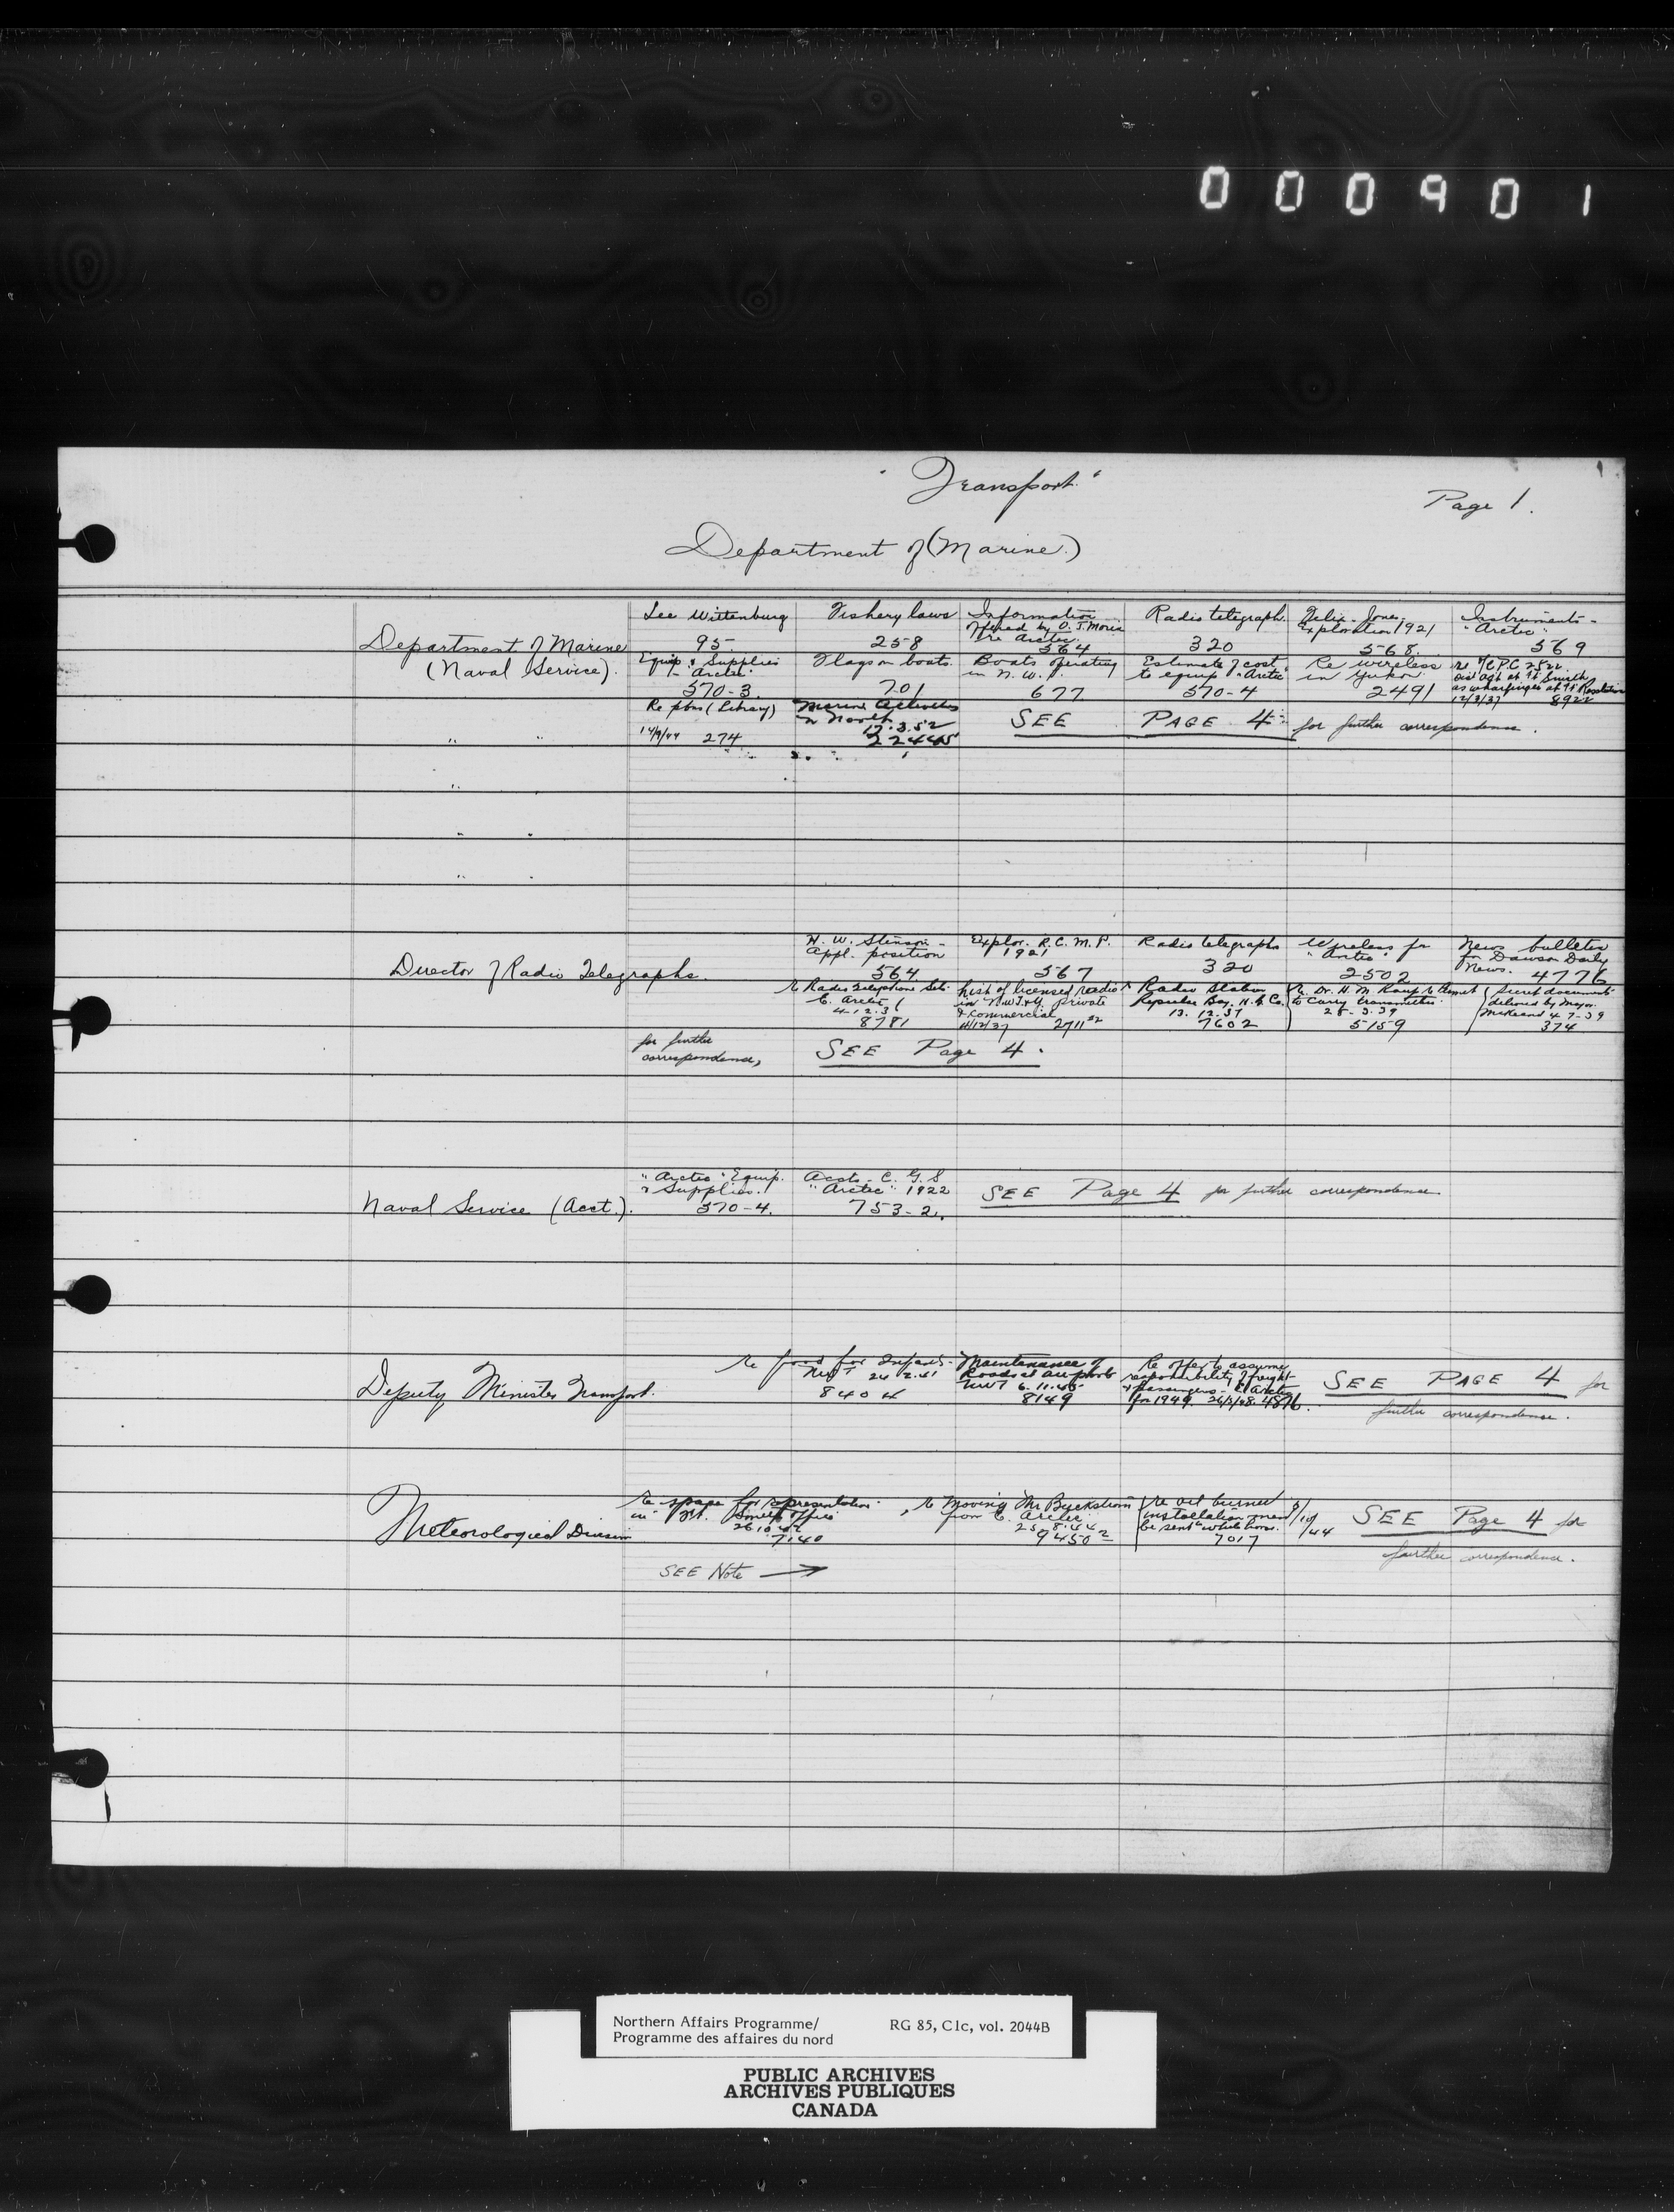 000901
"Transport"
Page 1.
Department of (Marine)
Department of Marine
(Naval Service).
Lee Wittenburg
95.
Fishery laws
258
Information
offered by O. J. Morris
re Arctic.
564
Radio telegraph.
320
Felix Jones,
Exploration 1921
568.
Instruments -
"Arctic"
569
Equip. & Supplies
- "Arctic".
570-3.
Flags on boats.
701
Boats operating
in N.W.T.
677
Estimate of cost
to equip "Arctic"
570-4
Re wireless
in Yukon
2491
re P.C. 2522
Dis. Agt at Ft Smith
as wharfinger at Ft Resolution
12/3/37 8922
Re pbns (Library)
14/9/44 274
Marine Activities
in North
17.3.52
22445
SEE PAGE 4 for further correspondence.
Director of Radio Telegraphs.
H. W. Stinson -
Appl. position
564
Explor. R.C.M.P.
1921
567
Radio telegraphs
320
Wireless for
"Arctic"
2502
News bulletin
for Dawson Daily
News. 4776
re Radio Telephone Sets
E. Arctic
4.12.36
8781
List of licensed radios
in N.W.T. & Y. private
& commercial
11/12/37 2711
Radio Station
Repulse Bay, H.B. Co.
13.12.37
7602
Re. Dr. H. M. Raup's
to carry transmitter
28.3.39
5159
Secret document
delivered by Major
McKeand 4-7-39
374
for further
correspondence,
SEE Page 4.
Naval Service (Acct.).
"Arctic" Equip.
& Supplies.
570-4.
Accts. C.G.S
"Arctic" 1922
753-2.
SEE Page 4 for further correspondence
Deputy Minister Transport.
re food for
NWT 24.2.41
8404
Maintenance of
Roads at airports
NWT 6.11.45
8149
Re offer to assume
responsibility of freight
& passengers - E. Arctic
for 1949. 26/3/48. 4876.
SEE PAGE 4 for
further correspondence.
Meteorological Division
re space for representation
in Ft. Smith office
26.10.42
7140
re moving Mr Buckstrom
from E. Arctic
25.8.44
9450
re oil burned
installation
be sent
7017
SEE Page 4 for
further correspondence.
SEE Note →
Northern Affairs Programme/
Programme des affaires du nord
RG 85, C1c, vol. 2044B
PUBLIC ARCHIVES
ARCHIVES PUBLIQUES
CANADA